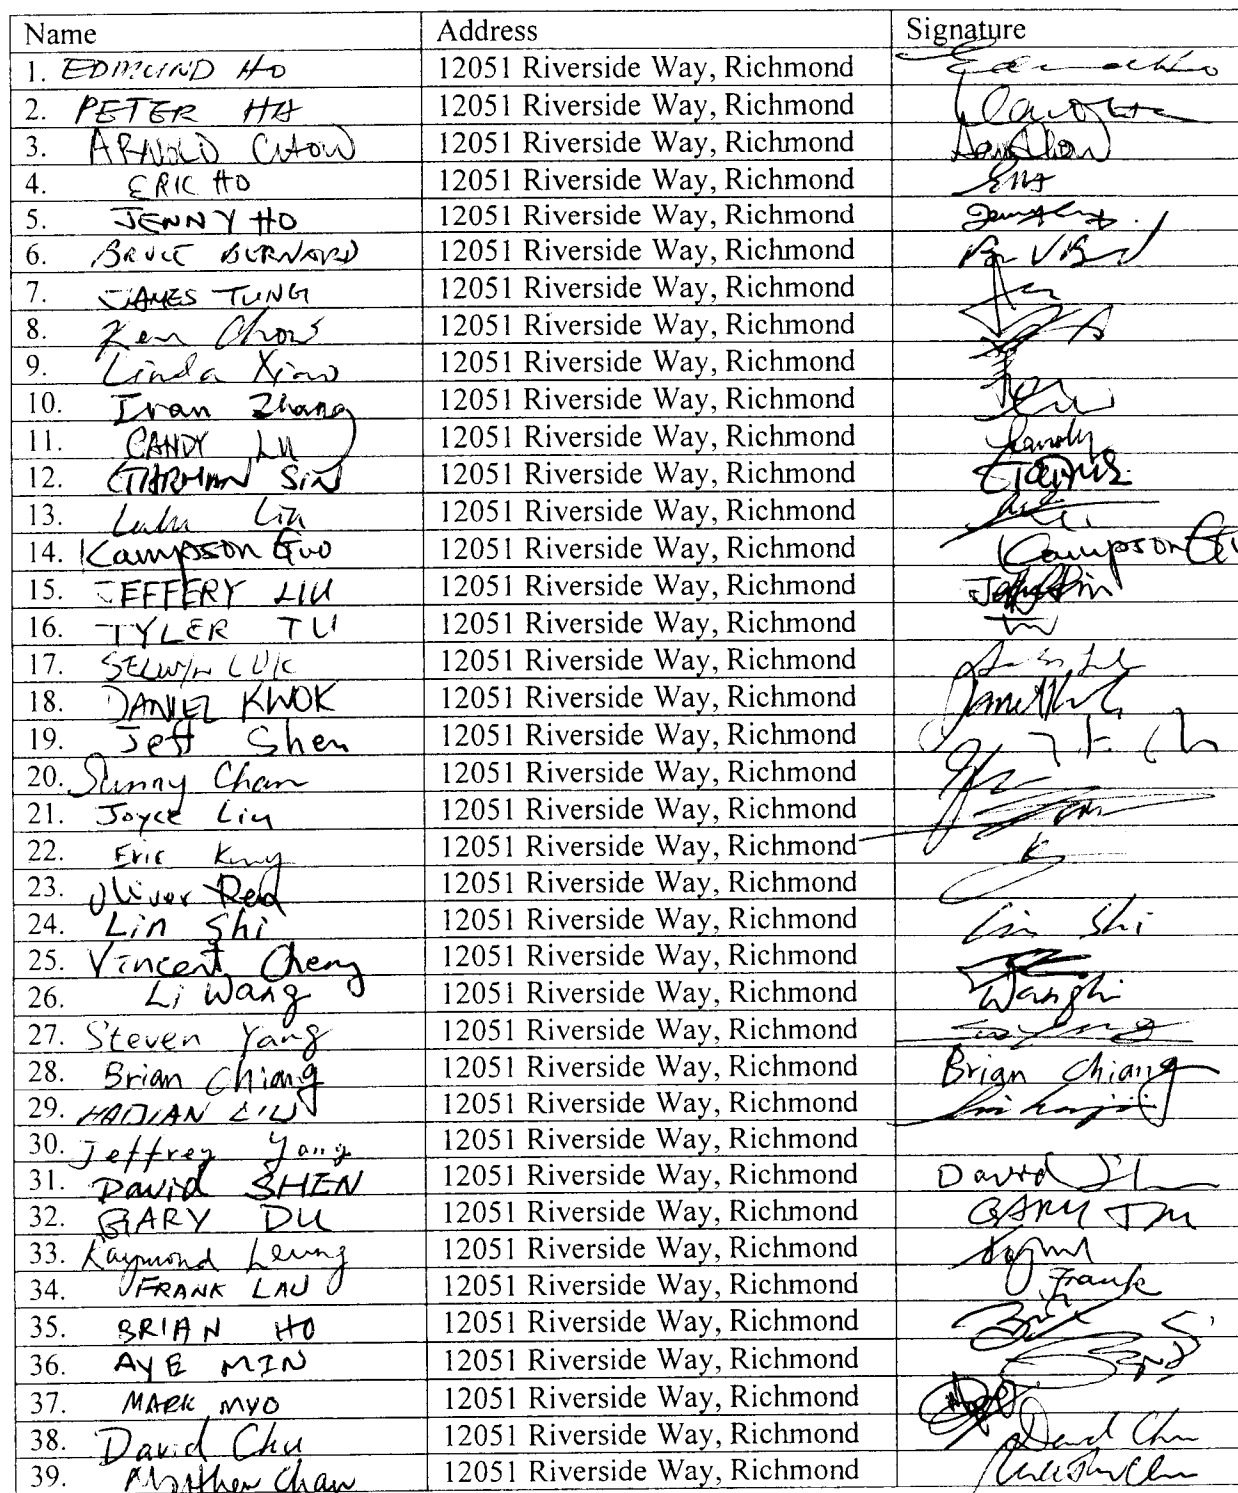 Name Address Signature
1. EDMUND HO 12051 Riverside Way, Richmond
2. PETER HA 12051 Riverside Way, Richmond
3. ARNOLD CHOW 12051 Riverside Way, Richmond
4. ERIC HO 12051 Riverside Way, Richmond
5. JENNY HO 12051 Riverside Way, Richmond
6. BRUCE BERNARD 12051 Riverside Way, Richmond
7. JAMES TUNG 12051 Riverside Way, Richmond
8. Ken Chow 12051 Riverside Way, Richmond
9. Linda Xiao 12051 Riverside Way, Richmond
10. Ivan Zhang 12051 Riverside Way, Richmond
11. CANDY LU 12051 Riverside Way, Richmond Candy
12. SIN 12051 Riverside Way, Richmond
13. 12051 Riverside Way, Richmond
14. Kampson Guo 12051 Riverside Way, Richmond Kampson Guo
15. JEFFERY LIU 12051 Riverside Way, Richmond
16. TYLER TU 12051 Riverside Way, Richmond
17. SELWYN LUK 12051 Riverside Way, Richmond
18. DANIEL KWOK 12051 Riverside Way, Richmond
19. Jeff Shen 12051 Riverside Way, Richmond
20. Sunny Chan 12051 Riverside Way, Richmond
21. Joyce Liu 12051 Riverside Way, Richmond
22. Eric 12051 Riverside Way, Richmond
23. Oliver 12051 Riverside Way, Richmond
24. Lin Shi 12051 Riverside Way, Richmond Lin Shi
25. Vincent Cheng 12051 Riverside Way, Richmond
26. Li Wang 12051 Riverside Way, Richmond Wang Li
27. Steven Yang 12051 Riverside Way, Richmond
28. Brian Chiang 12051 Riverside Way, Richmond Brian Chiang
29. HAIJIAN LIU 12051 Riverside Way, Richmond
30. Jeffrey Yang 12051 Riverside Way, Richmond
31. David SHEN 12051 Riverside Way, Richmond David
32. GARY DU 12051 Riverside Way, Richmond GARY
33. Raymond Leung 12051 Riverside Way, Richmond
34. FRANK LAU 12051 Riverside Way, Richmond Frank
35. BRIAN HO 12051 Riverside Way, Richmond
36. AYE MIN 12051 Riverside Way, Richmond
37. MARK MYO 12051 Riverside Way, Richmond
38. David Chu 12051 Riverside Way, Richmond David Chu
39. Matthew Chan 12051 Riverside Way, Richmond